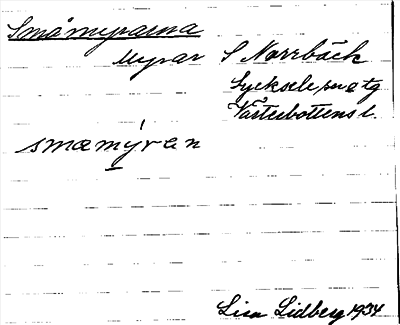 Småmyrarna
Myrar S Norrbäck
Lycksele sn o tg
Västerbottens l.
smœmýran
Lisa Lidberg 1934